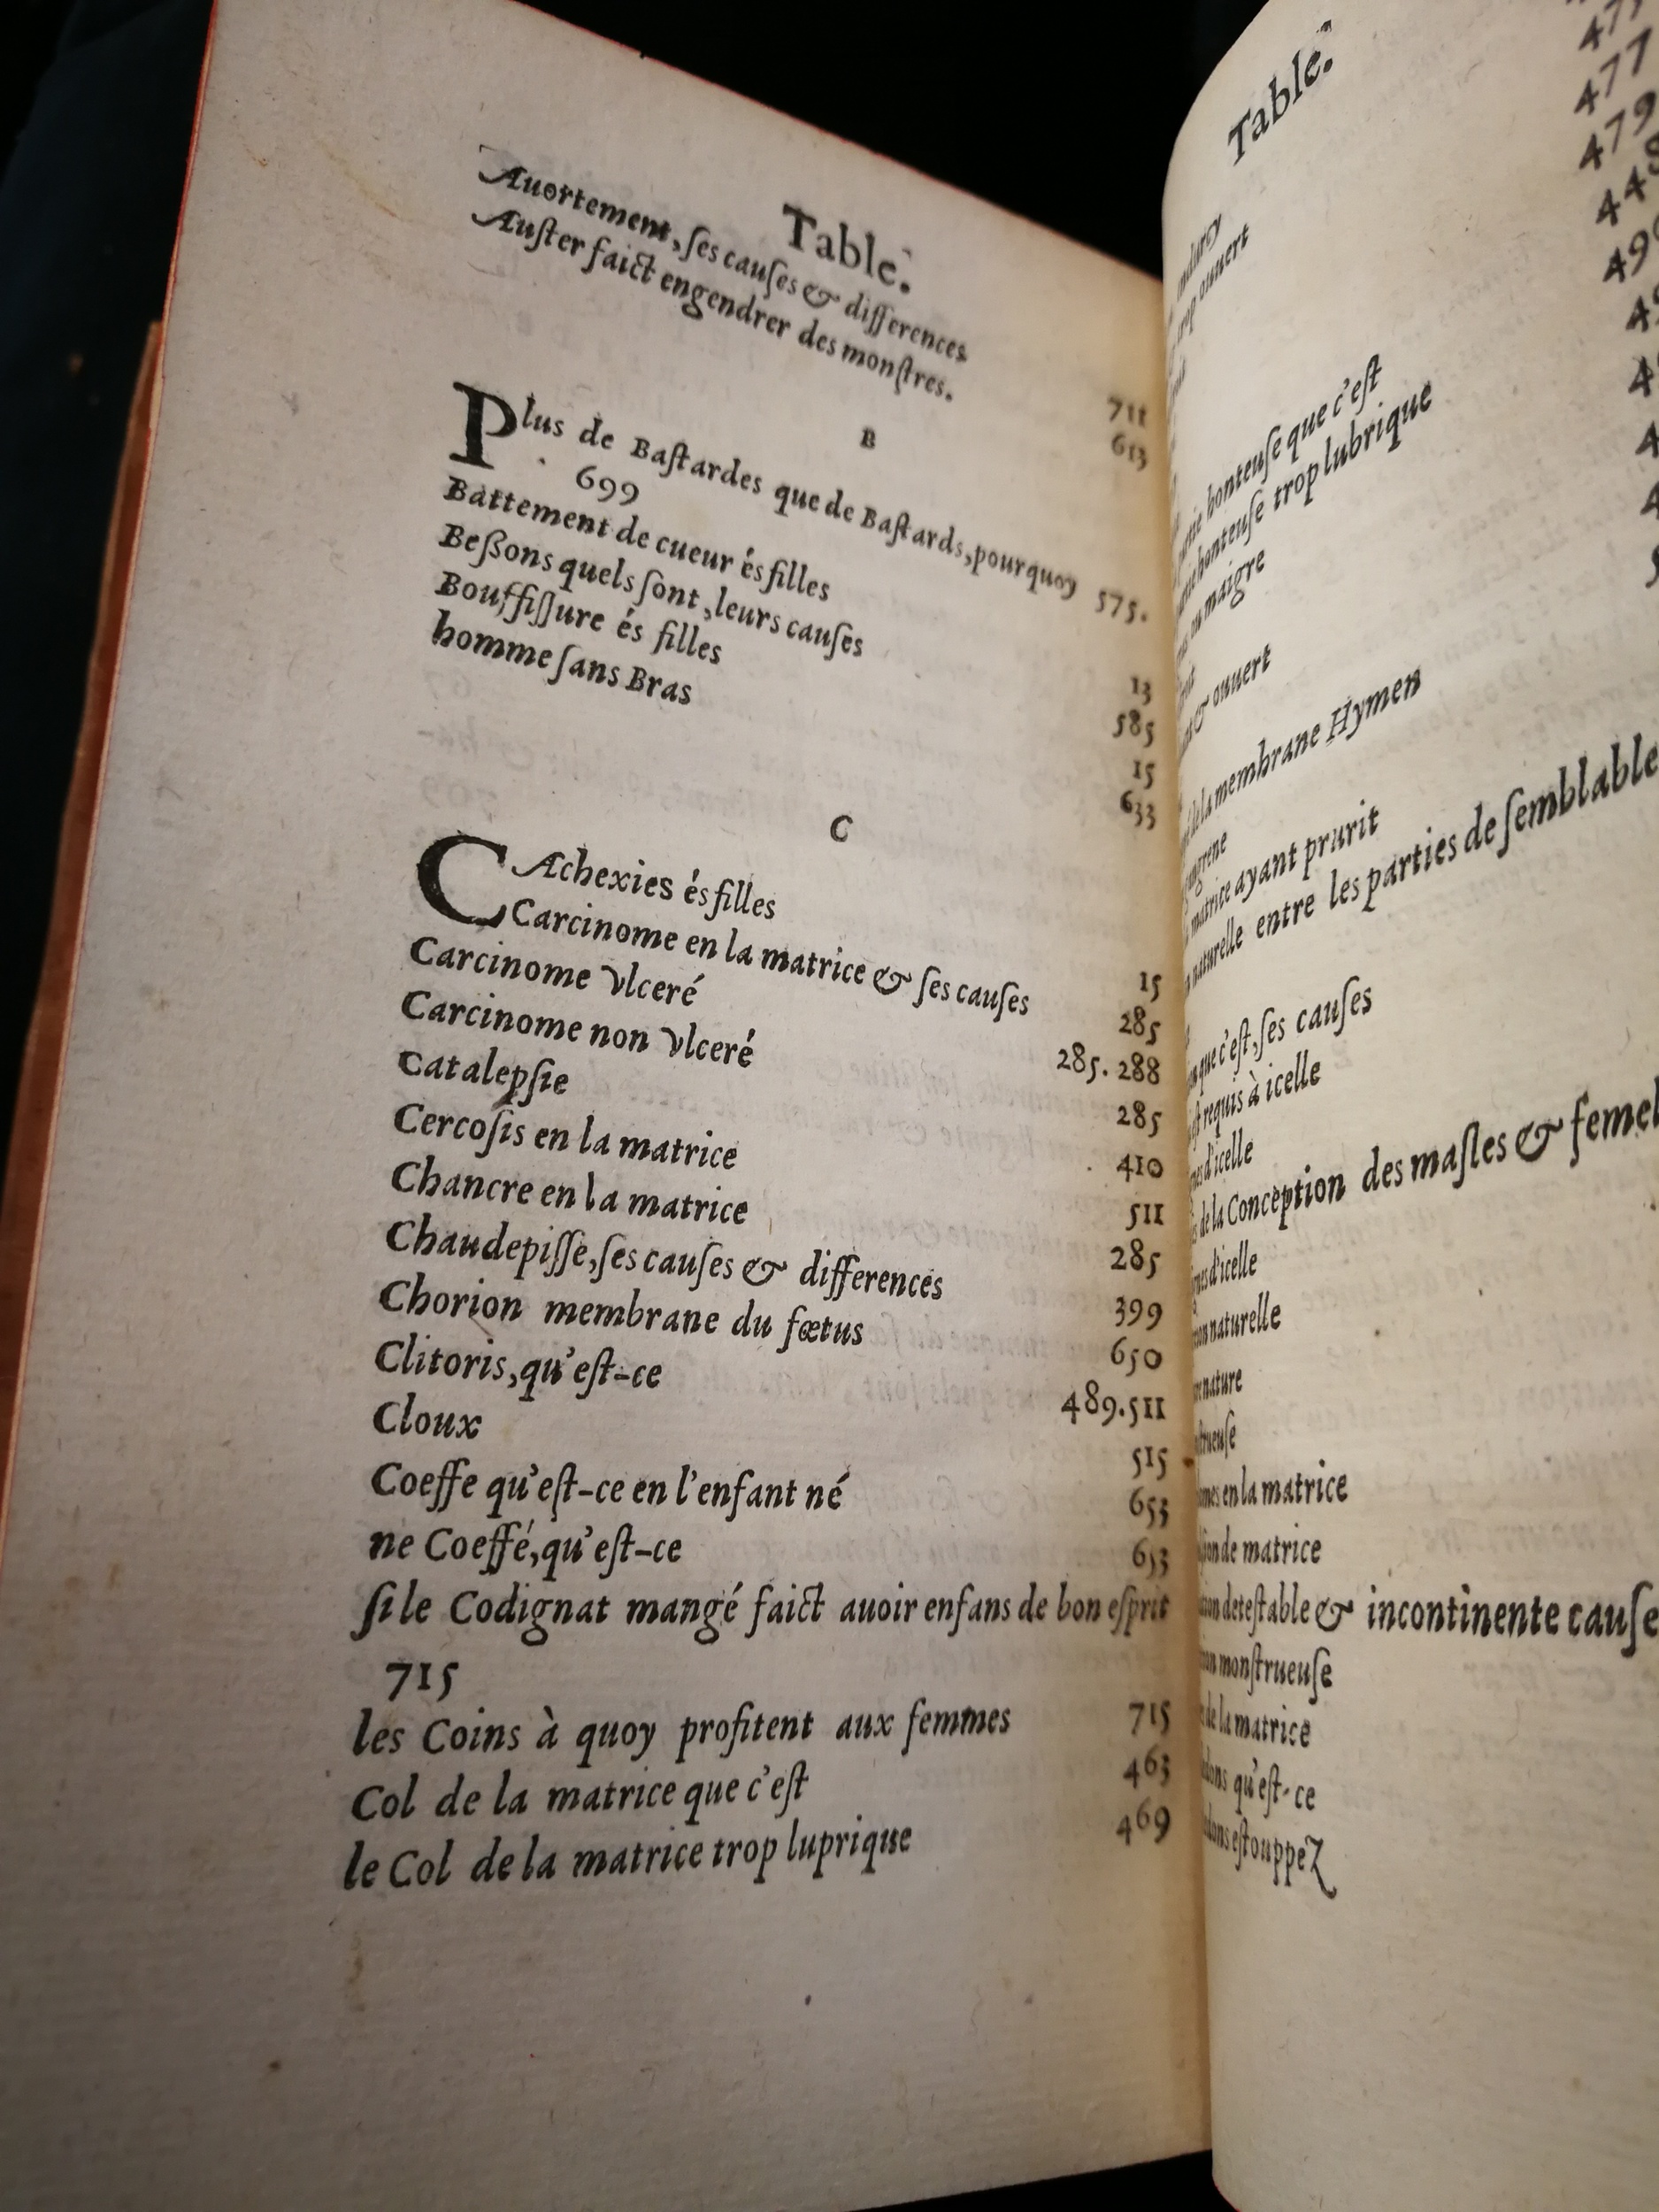 Table.
Auortement, ſes cauſes & differences 711
Auſter faict engendrer des monſtres. 613
B
Plus de Baſtardes que de Baſtards, pourquoy
699
Battement de cueur és filles 575.
Beſſons quels ſont, leurs cauſes
Bouffiſſure és filles 13
homme ſans Bras 585
15
633
C
CAchexies és filles 15
Carcinome en la matrice & ſes cauſes 285
Carcinome vlceré 285. 288
Carcinome non vlceré 285
Catalepſie 410
Cercoſis en la matrice 511
Chancre en la matrice 285
Chaudepiſſe, ſes cauſes & differences 399
Chorion membrane du fœtus 650
Clitoris, qu'eſt-ce 489. 511
Cloux 515
Coeffe qu'eſt-ce en l'enfant né 653
ne Coeffé, qu'eſt-ce 653
ſi le Codignat mangé faict auoir enfans de bon eſprit
715
les Coins à quoy profitent aux femmes 715
Col de la matrice que c'eſt 463
le Col de la matrice trop luprique 469
Table.
477
479
endurcy
trop ouuert
honteuſe que c'eſt
honteuſe trop lubrique
maigre
& ouuert
de la membrane Hymen
matrice ayant prurit
naturelle entre les parties de ſemblable
que c'eſt, ſes cauſes
requis à icelle
d'icelle
de la Conception des maſles & femel
d'icelle
naturelle
nature
en la matrice
de matrice
deteſtable & incontinente cauſe
monſtrueuſe
de la matrice
qu'eſt-ce
eſtouppez